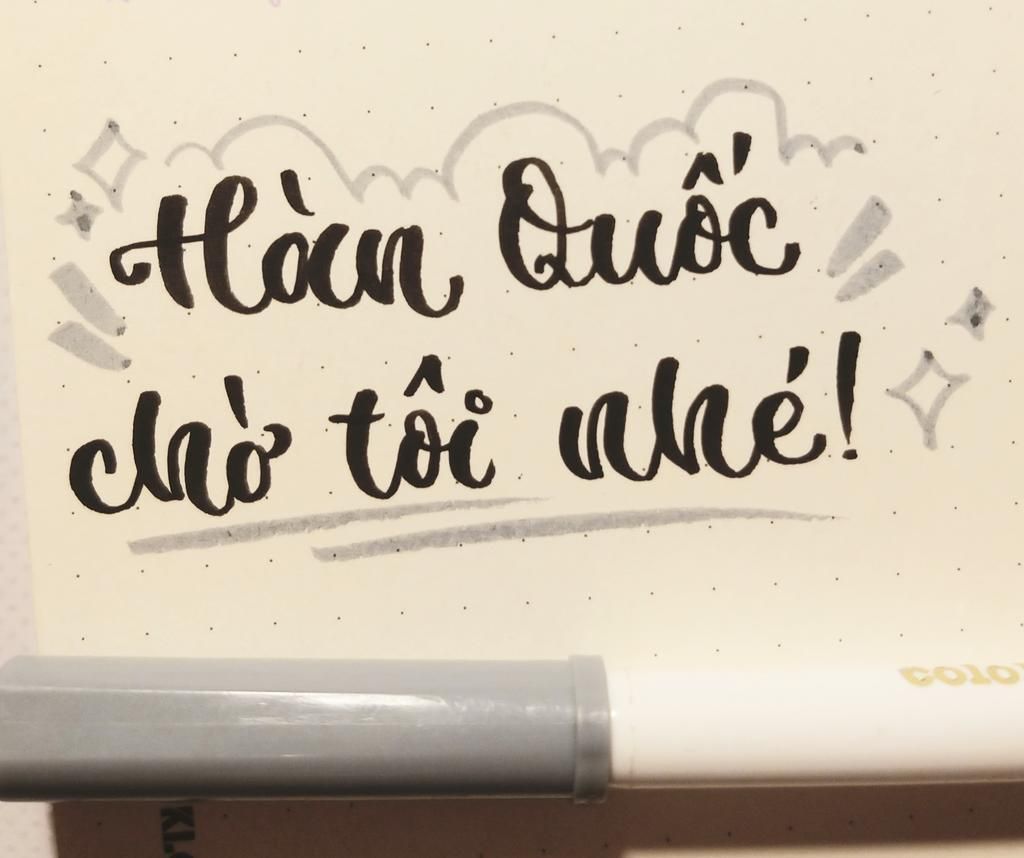 Hàn Quốc
chờ tôi nhé!
color